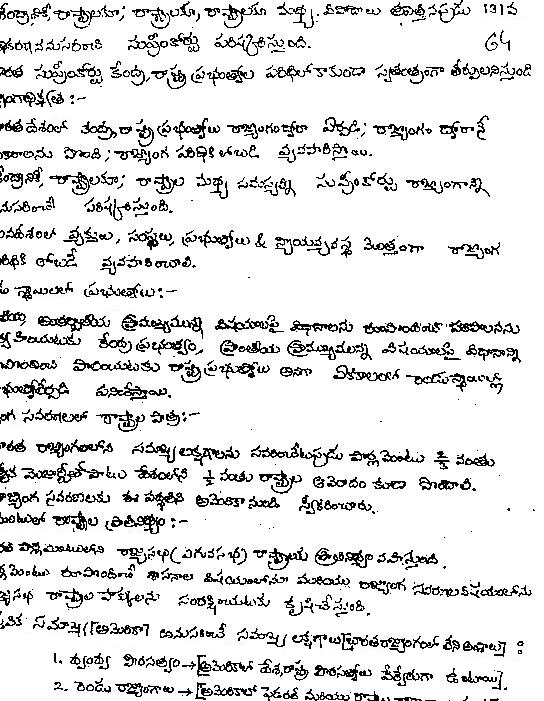 కేంద్రానికీ, రాష్ట్రాలకూ; రాష్ట్రాలకూ, రాష్ట్రాలకూ మధ్య. వివాదాలు తలెత్తినప్పుడు 131వ
ప్రకరణాన్ననుసరించి సుప్రీంకోర్టు పరిష్కరిస్తుంది. 64
భారత సుప్రీంకోర్టు కేంద్ర, రాష్ట్ర ప్రభుత్వాల పరిధిలో కాకుండా స్వతంత్రంగా తీర్పులనిస్తుంది
రాజ్యాంగాధిక్యత :-
భారతదేశంలో కేంద్ర, రాష్ట్ర ప్రభుత్వాలు రాజ్యాంగంద్వారా ఏర్పడి; రాజ్యాంగం ద్వారానే
అధికారాలను పొంది; రాజ్యాంగ పరిధికి లోబడి వ్యవహరిస్తాయి.
కేంద్రానికీ, రాష్ట్రాలకూ; రాష్ట్రాల మధ్య సమస్యల్ని సుప్రీంకోర్టు రాజ్యాంగాన్ని
అనుసరించే పరిష్కరిస్తుంది.
భారతదేశంలో వ్యక్తులు, సంస్థలు, ప్రభుత్వాలు & న్యాయవ్యవస్థ మొత్తంగా రాజ్యాంగ
పరిధికి లోబడే వ్యవహరించాలి.
రెండు స్థాయిలలో ప్రభుత్వాలు :-
జాతీయ, అంతర్జాతీయ ప్రాముఖ్యమున్న విషయాలపై విధానాలను రూపొందించి పరిపాలనను
నిర్వహించుటకు కేంద్ర ప్రభుత్వం, ప్రాంతీయ ప్రాముఖ్యమున్న విషయాలపై విధానాన్ని
రూపొందించి పాలించుటకు రాష్ట్ర ప్రభుత్వాలు అనగా ఏకకాలంలో రెండుస్థాయిల్లో
ప్రభుత్వాలేర్పడి పనిచేస్తాయి.
రాజ్యాంగ సవరణలలో రాష్ట్రాల పాత్ర :-
భారత రాజ్యాంగంలోని సమాఖ్య లక్షణాలను సవరించేటప్పుడు పార్లమెంటు 2/3 వంతు
ప్రత్యేక మెజార్టీతోపాటు దేశంలోని 1/2 వంతు రాష్ట్రాల ఆమోదం కూడా పొందాలి.
రాజ్యాంగ సవరణలకు ఈ పద్ధతిని అమెరికా నుండి స్వీకరించారు.
పార్లమెంటులో రాష్ట్రాల ప్రాతినిధ్యం :-
భారత పార్లమెంటులోని రాజ్యసభ (ఎగువసభ) రాష్ట్రాలకు ప్రాతినిధ్యం వహిస్తుంది.
పార్లమెంటు రూపొందించే శాసనాల విషయంలోనూ మరియు రాజ్యాంగ సవరణల విషయంలోను
రాజ్యసభ రాష్ట్రాల హక్కులను సంరక్షించుటకు కృషిచేస్తుంది.
సమాఖ్య [అమెరికా] అనుసరించే సమాఖ్య లక్షణాలు [భారతరాజ్యాంగంలో లేని అంశాలు] :
1. ద్వంద్వ పౌరసత్వం → [అమెరికాలో దేశ, రాష్ట్ర పౌరసత్వాలు వేర్వేరుగా ఉంటాయి].
2. రెండు రాజ్యాంగాలు → [అమెరికాలో ఫెడరల్ మరియు రాష్ట్రాల